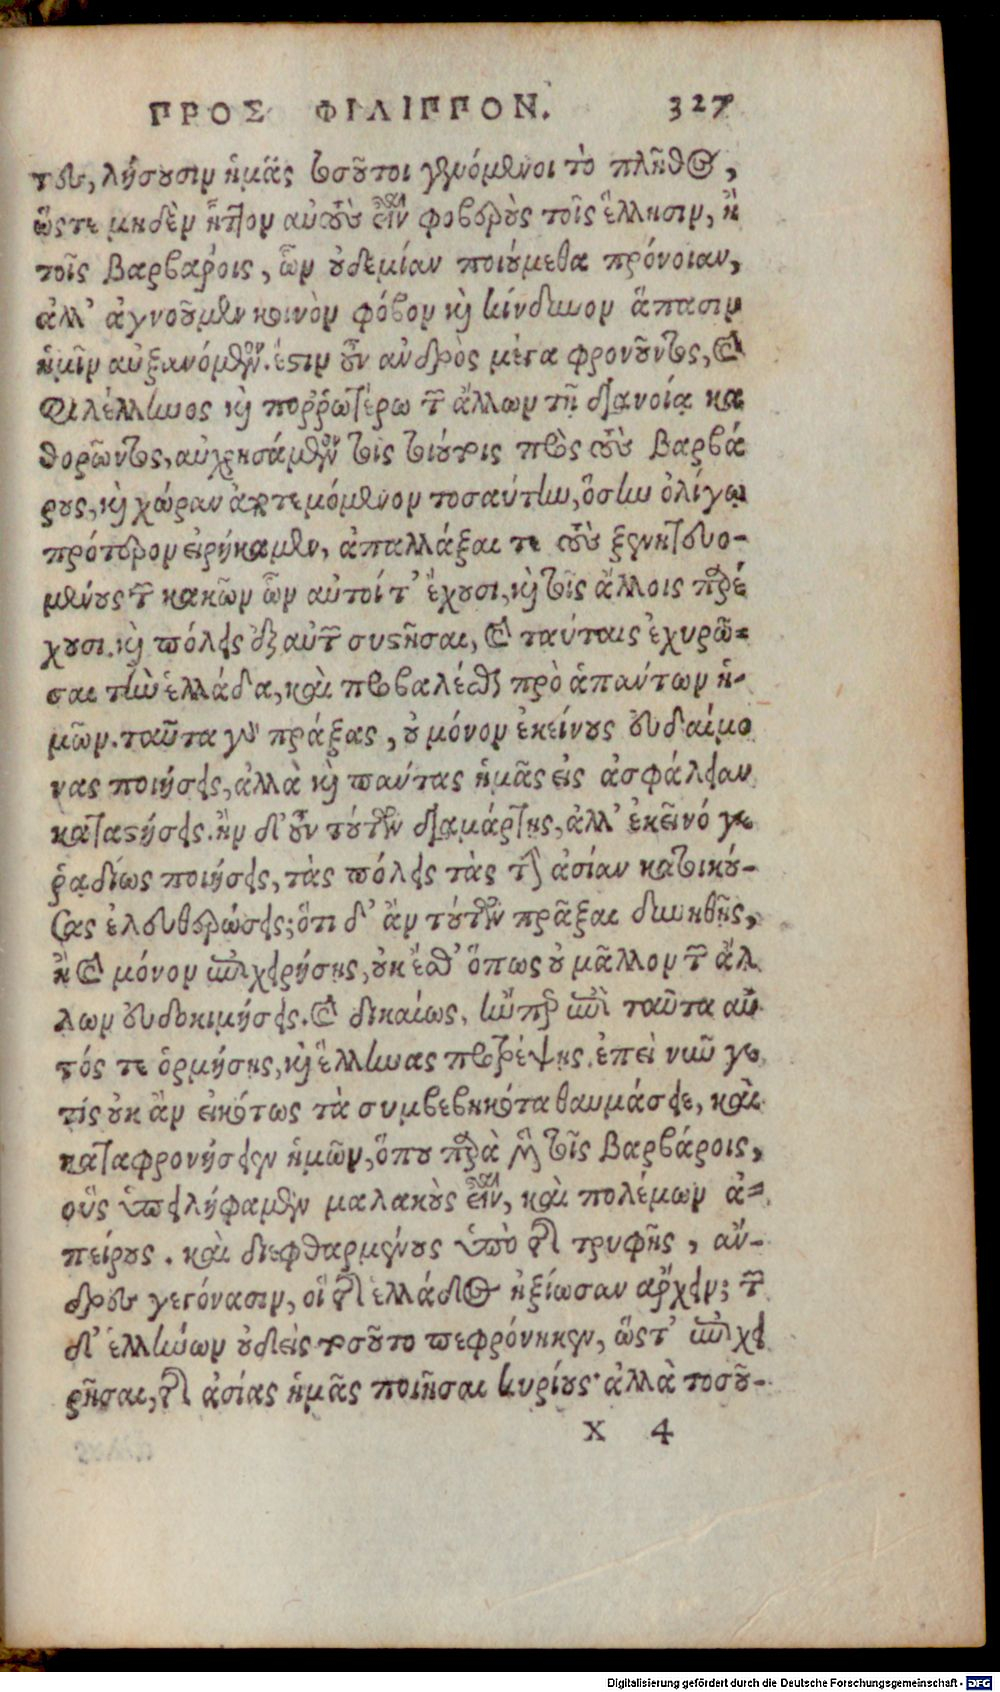 ΠΡΟΣ ΦΙΛΙΠΠΟΝ. 327
τες, λήσουσιν ἡμᾶς τοσοῦτοι γενόμενοι τὸ πλῆθος,
ὥστε μηδὲν ἧττον αὐτοὺς εἶναι φοβεροὺς τοῖς ἕλλησιν, ἢ
τοῖς Βαρβάροις, ὧν οὐδεμίαν ποιούμεθα πρόνοιαν,
ἀλλ' ἀγνοοῦμεν κοινὸν φόβον καὶ κίνδυνον ἅπασιν
ἡμῖν αὐξανόμενον. ἔστιν οὖν ἀνδρὸς μέγα φρονοῦντος, καὶ
Φιλέλληνος καὶ πορρωτέρω τῶν ἄλλων τῇ διανοίᾳ κα
θορῶντος, αὐχρησάμενον τοῖς τοιούτοις πρὸς τοὺς Βαρβά
ρους, καὶ χώραν ἀποτεμόμενον τοσαύτην, ὅσην ὀλίγῳ
πρότερον εἰρήκαμεν, ἀπαλλάξαι τε τοὺς ξενητευο-
μένους τῶν κακῶν ὧν αὐτοί τ' ἔχουσι, καὶ τοῖς ἄλλοις παρέ
χουσι. καὶ πόλεις ἐξ αὐτῶν συστῆσαι, καὶ ταύταις ἐχυρῶ=
σαι τὴν ἑλλάδα, καὶ προβαλέσθαι πρὸ ἁπάντων ἡ-
μῶν. ταῦτα γὰρ πράξας, οὐ μόνον ἐκείνους εὐδαίμο
νας ποιήσεις, ἀλλὰ καὶ πάντας ἡμᾶς εἰς ἀσφάλειαν
καταστήσεις. ἢν δ' οὖν τούτων διαμάρτης, ἀλλ' ἐκεῖνό γε
ῥαδίως ποιήσεις, τὰς πόλεις τὰς τὴν ἀσίαν κατοικού-
σας ἐλευθερώσεις; ὅτι δ' ἂν τούτων πρᾶξαι δυνηθῇς,
ἢ καὶ μόνον ἐπιχειρήσῃς, οὐκ ἔσθ' ὅπως οὐ μᾶλλον τῶν ἄλ
λων εὐδοκιμήσεις. καὶ δικαίως, ἤνπερ ἐπὶ ταῦτα αὐ
τός τε ὁρμήσῃς, καὶ ἕλληνας προτρέψῃς. ἐπεὶ νῦν γε
τίς οὐκ ἂν εἰκότως τὰ συμβεβηκότα θαυμάσειε, καὶ
καταφρονήσειεν ἡμῶν, ὅπου παρὰ μὲν τοῖς Βαρβάροις,
οὓς ὑπειλήφαμεν μαλακοὺς εἶναι, καὶ πολέμων ἀ=
πείρους. καὶ διεφθαρμένους ὑπὸ τῆς τρυφῆς, ἄν-
δρες γεγόνασιν, οἳ τῆς ἑλλάδος ἠξίωσαν ἄρχειν; τῶν
δ' ἑλλήνων οὐδεὶς τοσοῦτο πεφρόνηκεν, ὥστ' ἐπιχει
ρῆσαι, τῆς ἀσίας ἡμᾶς ποιῆσαι κυρίους· ἀλλὰ τοσοῦ-
X 4
Digitalisierung gefördert durch die Deutsche Forschungsgemeinschaft - DFG